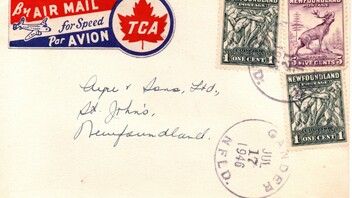 By AIR MAIL
for Speed
Par AVION
TCA
POSTAGE
1 ONE CENT 1
NEWFOUNDLAND
5 FIVE CENTS 5
NEWFOUNDLAND
1 ONE CENT 1
Ayre & Sons, Ltd.,
St. John's,
Newfoundland.
GANDER
JUL
17
1946
NFL'D.